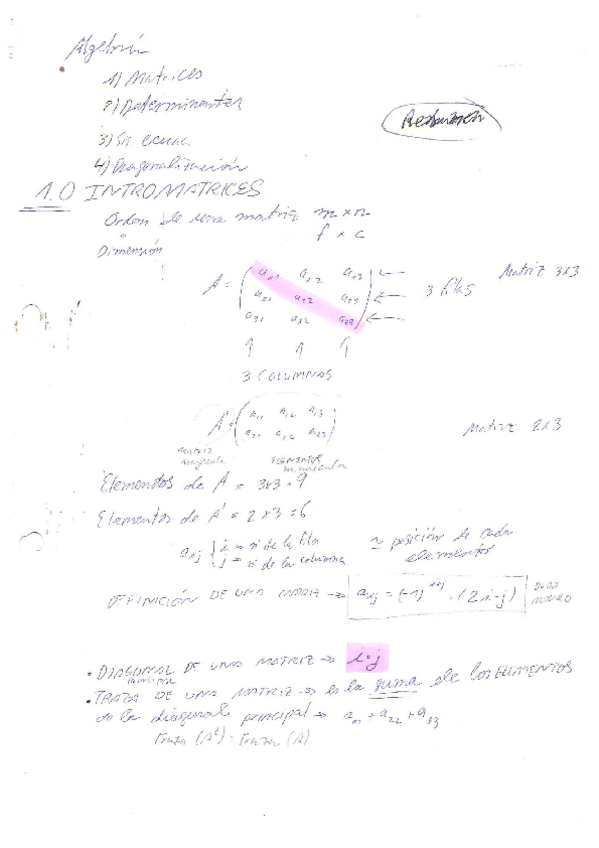 Algebra
1) Matrices
2) Determinantes
Resumen
3) Sis. ecuac.
4) Diagonalización
1.0 INTROMATRICES
Orden de una matriz m x n
f x c
Dimensión
A = (a11 a12 a13 Matriz 3x3
a21 a12 a23 3 filas
a31 a32 a33)
3 COLUMNAS
A' = (a11 a12 a13
a21 a22 a23) Matriz 2x3
MATRIZ ELEMENTOS
mayúscula minúscula
Elementos de A = 3x3 = 9
Elementos de A' = 2x3 = 6
aij { i = nº de la fila posición de cada
j = nº de la columna elemento
DEFINICIÓN DE UNA MATRIZ → aij = (-1)^i+j · (2i-j)
• DIAGONAL DE UNA MATRIZ → i=j
PRINCIPAL
• TRAZA DE UNA MATRIZ → es la suma de los ELEMENTOS
de la diagonal principal → a11 + a22 + a33
Traza (A^t) = Traza (A)